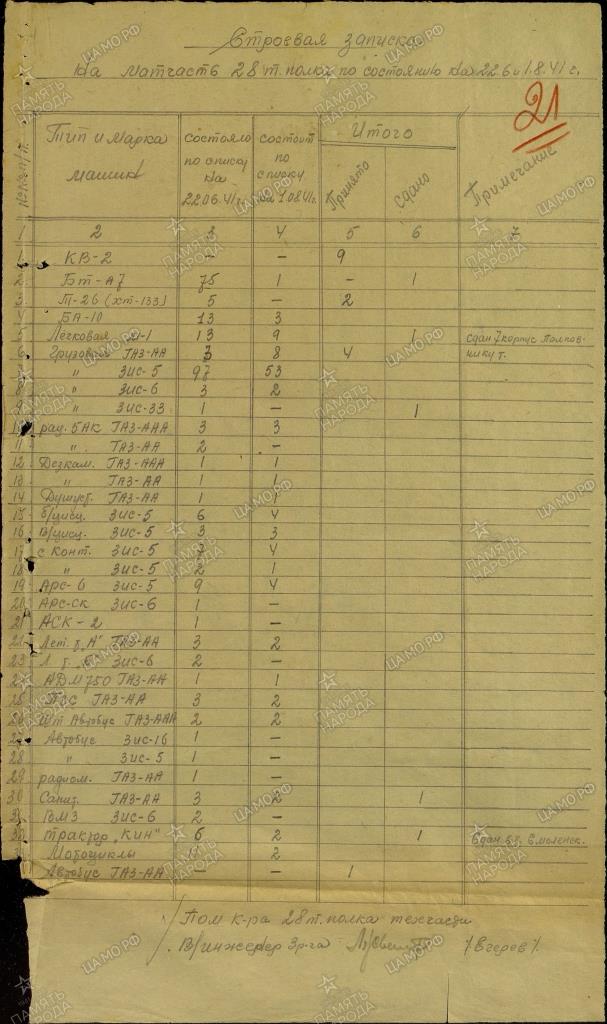 Строевая записка
На матчасть 28 т. полка по состоянию на 22.6 и 1.8.41 г.
21
№№ п/п. Тип и марка машин состояло по списку на 22.06.41г. состоит по списку на 1.08.41г. Итого Принято Сдано Примечание
1 2 3 4 5 6 7
1 КВ-2 – – 9
2 БТ-А7 75 1 – 1
3 Т-26 (хт-133) 5 – 2
4 БА-10 13 3
5 Легковая М-1 13 9 1 сдан 7 корпус Полков-
6 Грузовые ГАЗ-АА 8 4 нику т.
7 " ЗИС-5 97 53
8 " ЗИС-6 3 2
9 " ЗИС-33 1 – 1
10 рад. 5АК ГАЗ-ААА 3 3
11 " ГАЗ-АА 2 –
12 Дезкам. ГАЗ-ААА 1 1
13 " ГАЗ-АА 1 1
14 Душуст. ГАЗ-АА 1 1
15 б/цисц. ЗИС-5 6 4
16 в/цисц. ЗИС-5 3 3
17 с конт. ЗИС-5 7 4
18 " ЗИС-5 2 1
19 АРС-6 ЗИС-5 9 4
20 АРС-СК ЗИС-6 1 –
21 АСК-2 1 –
Лет. т. "А" ГАЗ-АА 3 2
23 Л. т. "Б" ЗИС-6 2 –
2 АДМ 750 ГАЗ-АА 1 1
25 ПСС ГАЗ-АА 3 2
26 Шт Автобус ГАЗ-ААА 2 2
27 Автобус ЗИС-16 1 –
28 " ЗИС-5 1 –
29 радиом. ГАЗ-АА 1 –
30 Санит. ГАЗ-АА 3 2 1
3 ВМЗ ЗИС-6 2 –
3 трактор "КИН" 6 2 1 Смоленск.
Мотоциклы 2
Автобус ГАЗ-АА – – 1
Пом к-ра 28 т. полка техчасти
В/инженер 3 р-га
ПАМЯТЬ НАРОДА
ЦАМО.РФ